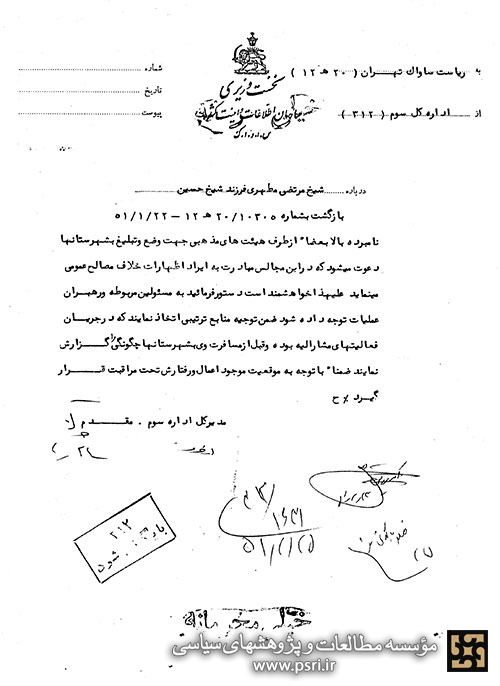 به ریاست ساواک تهران (۲۰ هـ ۱۲)
از اداره کل سوم (۳۱۲)
نخست وزیری
سازمان اطلاعات و امنیت کشور
س.ا.و.ا.ک
شماره
تاریخ
پیوست
درباره شیخ مرتضی مطهری فرزند شیخ حسین
بازگشت بشماره ۲۰/۱۰۳۰۵ هـ ۱۲ – ۵۱/۱/۲۲
نامبرده بالا بعضاً از طرف هیئت های مذهبی جهت وعظ و تبلیغ بشهرستانها
دعوت میشود که در این مجالس مبادرت به ایراد اظهارات خلاف مصالح عمومی
مینماید علیهذا خواهشمند است دستور فرمائید به مسئولین مربوطه و رهبران
عملیات توجه داده شود ضمن توجیه منابع ترتیبی اتخاذ نمایند که در جریان
فعالیتهای مشارالیه بوده و قبل از مسافرت وی بشهرستانها چگونگی را گزارش
نمایند ضمناً با توجه به موقعیت موجود اعمال و رفتارش تحت مراقبت قرار
گیرد ح
مدیرکل اداره سوم . مقدم
۳۱۲
بایگانی شود
خیلی محرمانه
مؤسسه مطالعات و پژوهشهای سیاسی
www.psri.ir